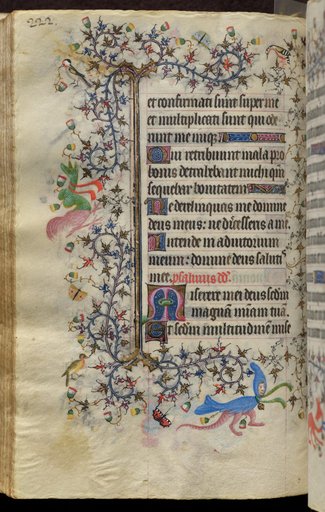 222.
et confirmati sunt super me
et multiplicati sunt qui ode
runt me iniq3.
Qui retribuunt mala pro
bonis detrahebant michi qm
sequebar bonitatem
Ne derelinquas me domine
deus meus: ne discesseris a me.
Intende in adiutorium
meum: domine deus saluti[s]
mee. psalmus dd.
Miserere mei deus scdm
magnam miam tua.
Et scdm multitudine mise